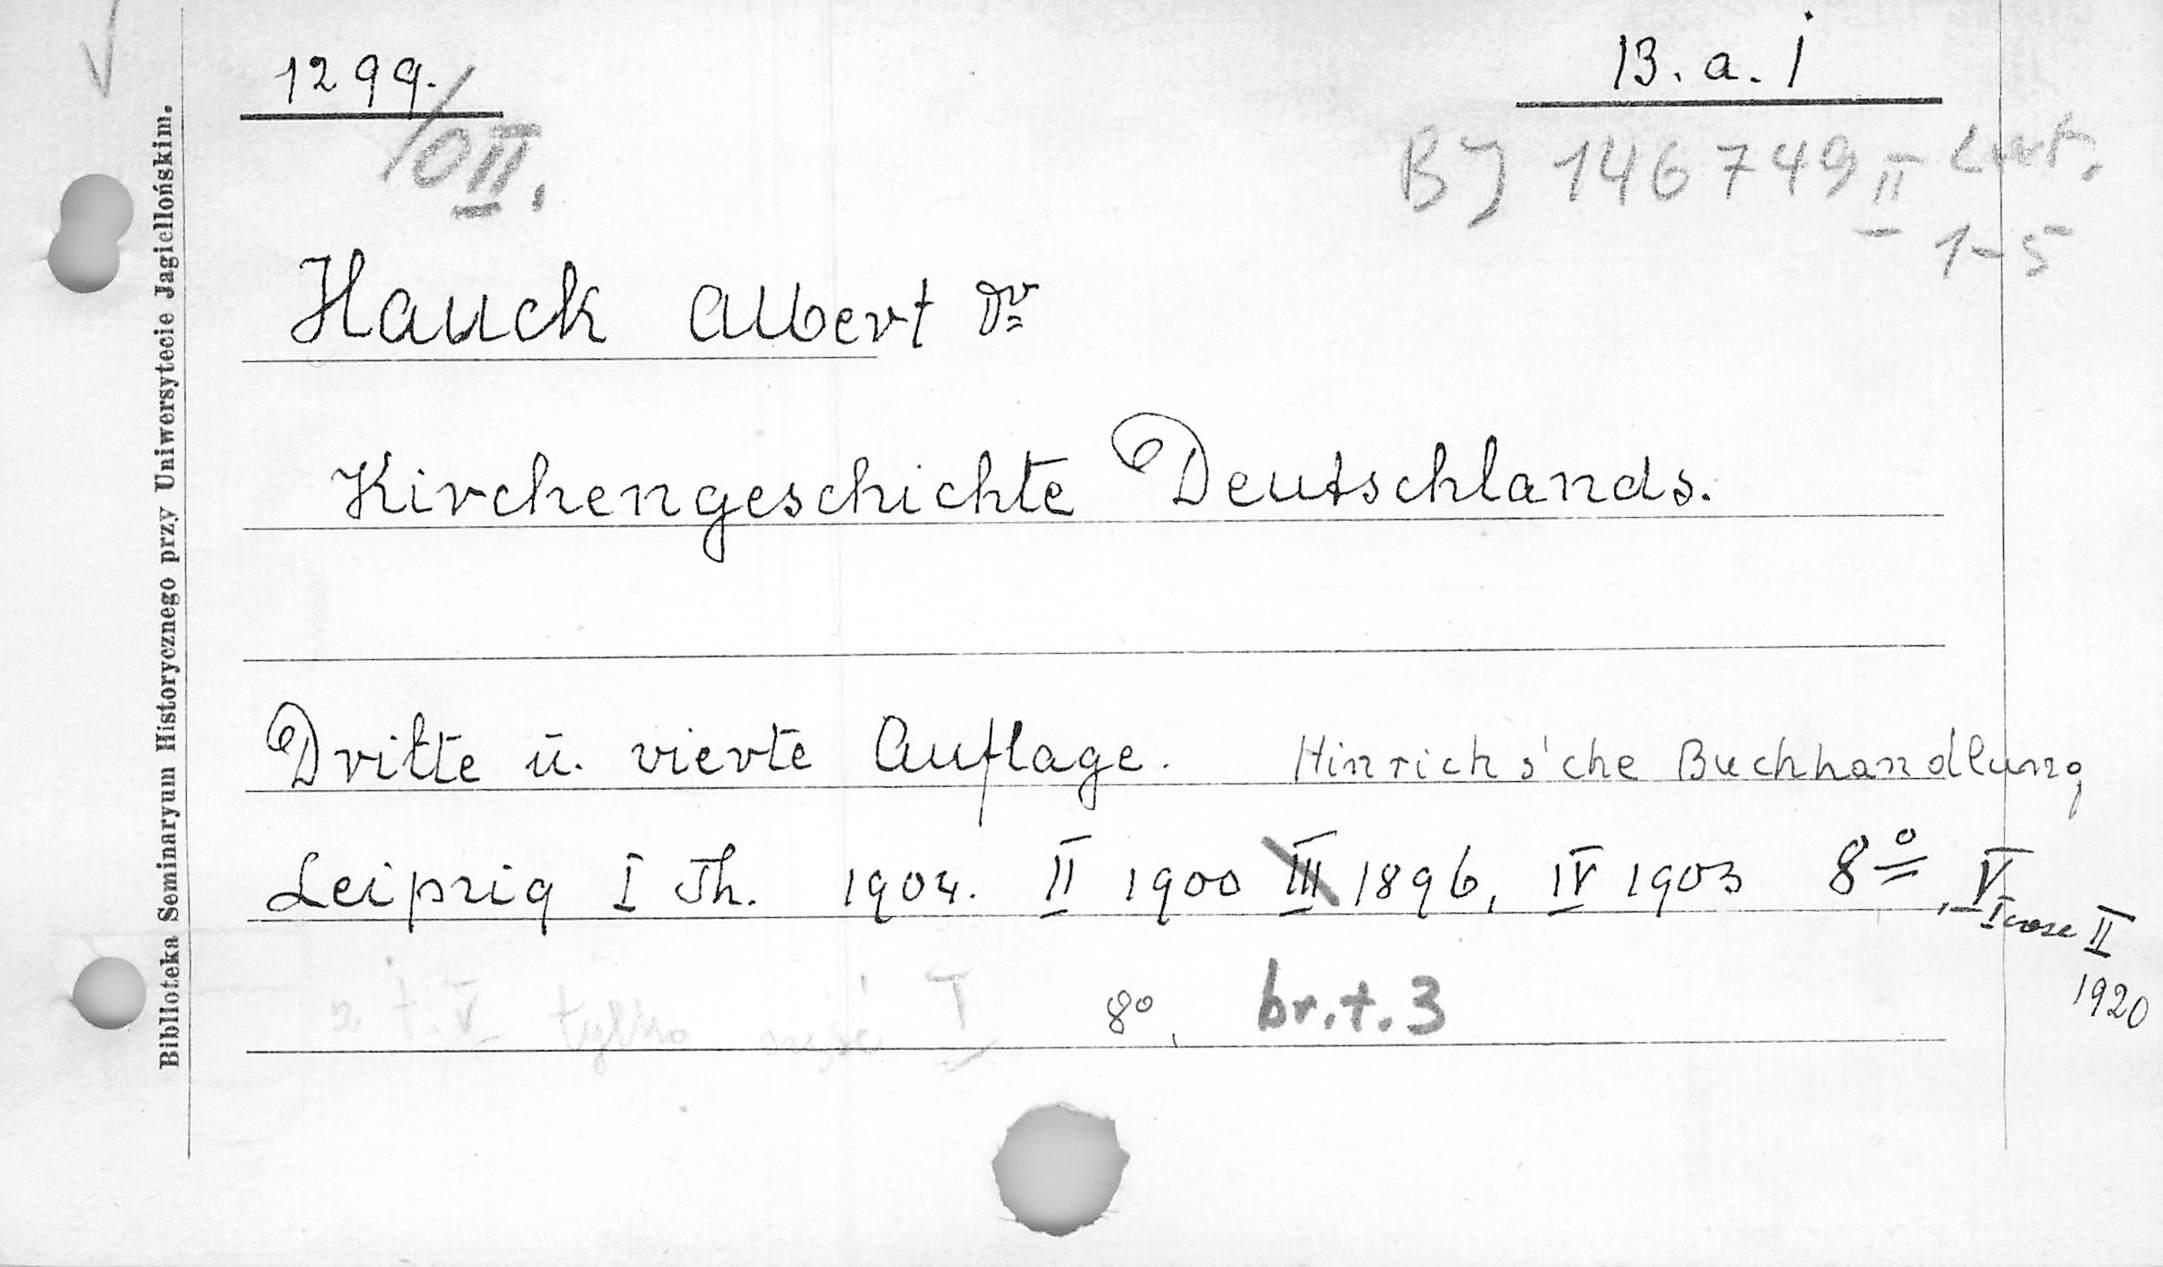 1299./
/0II.
B. a. i
BJ 146749 II Lect.
1-5
Hauck Albert Dr
Kirchengeschichte Deutschlands.
Dritte u. vierte Auflage. Hinrichs'che Buchhandlung
Leipzig I Th. 1904. II 1900 III 1896, IV 1903 8º, V I II
1920
z t. V tylko część I 8º, br. t. 3
Biblioteka Seminaryum Historycznego przy Uniwersytecie Jagiellońskim.